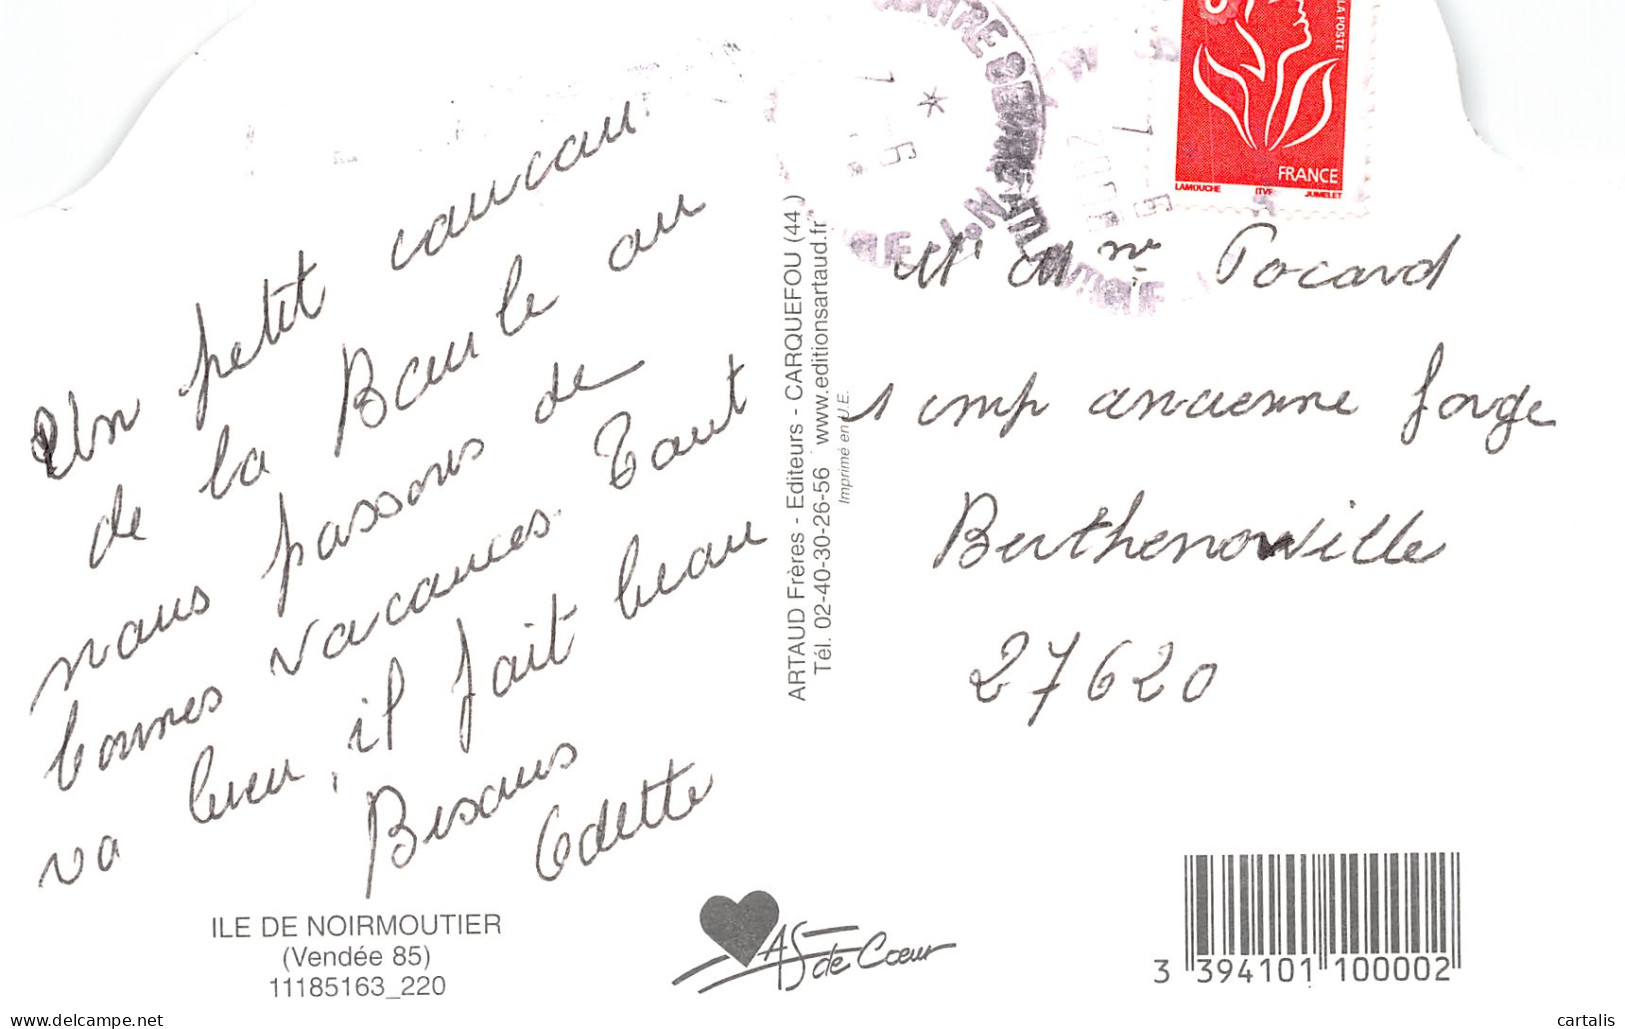 Un petit coucou
de la Baule ou
nous passons de
bonnes vacances. Tout
va bien, il fait beau
Bisous
Odette
ILE DE NOIRMOUTIER
(Vendée 85)
11185163_220
ARTAUD Frères - Editeurs - CARQUEFOU (44)
Tél. 02-40-30-26-56 www.editionsartaud.fr
Imprimé en U.E.
AS de Cœur
LA POSTE
FRANCE
LAMOUCHE ITVF JUMELET
7 - 6
7 - 6
Mr Mme Pocard
1 imp ancienne forge
Berthenonville
27620
3 394101 100002
cartalis
www.delcampe.net